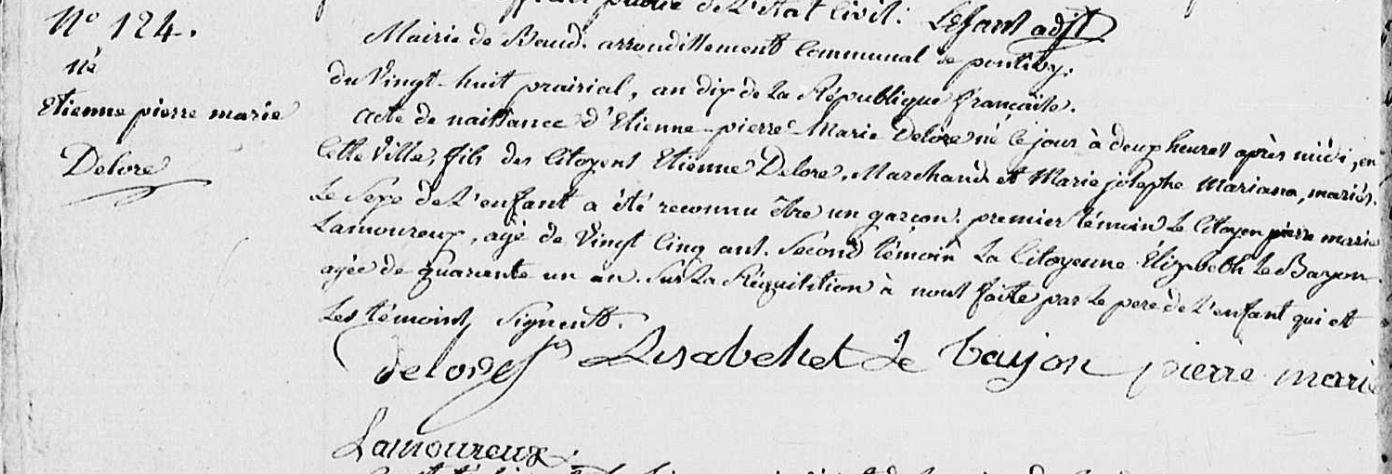 public de L'état Civil. Lefant adjt
N° 124.
né
Etienne pierre marie
Delore
Mairie de Baud. arrondissement Communal de pontivy.
du Vingt-huit prairial, an dix de La République française.
Acte de naissance d'Etienne-pierre-Marie Delore né le jour à deux heures après midi, en
Cette Ville, fils des Citoyens Etienne Delore, Marchand et Marie josephe Mariana, mariés.
Le Sexe de L'enfant a été reconnu être un garçon. premier témoin Le Citoyen pierre marie
Lamoureux, agé de Vingt Cinq ans. Second témoin La Citoyenne Élizabeth Le Bayon
agée de quarante un an. Sur La Réquisition à nous faite par Le pere de L'enfant qui et
Les témoins Signent.
delore fs Lisabehet Le bayon pierre marie
Lamoureux.